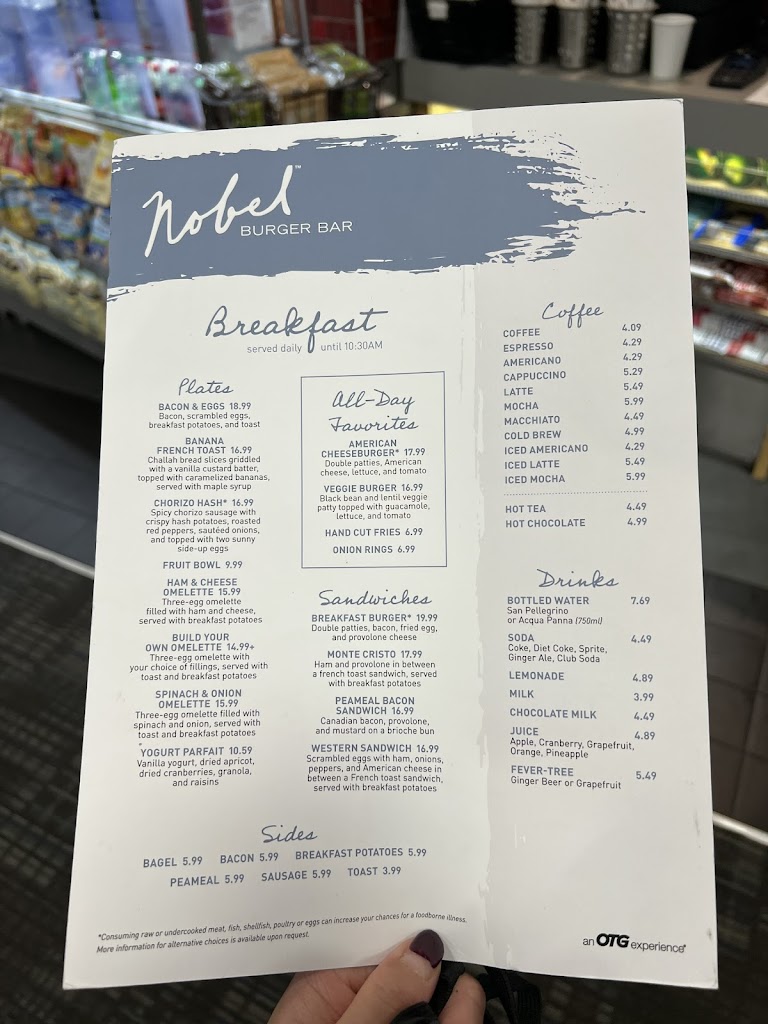 Nobel™
BURGER BAR
Breakfast
served daily until 10:30AM
Plates
BACON & EGGS 18.99
Bacon, scrambled eggs,
breakfast potatoes, and toast
BANANA
FRENCH TOAST 16.99
Challah bread slices griddled
with a vanilla custard batter,
topped with caramelized bananas,
served with maple syrup
CHORIZO HASH* 16.99
Spicy chorizo sausage with
crispy hash potatoes, roasted
red peppers, sautéed onions,
and topped with two sunny
side-up eggs
FRUIT BOWL 9.99
HAM & CHEESE
OMELETTE 15.99
Three-egg omelette
filled with ham and cheese,
served with breakfast potatoes
BUILD YOUR
OWN OMELETTE 14.99+
Three-egg omelette with
your choice of fillings, served with
toast and breakfast potatoes
SPINACH & ONION
OMELETTE 15.99
Three-egg omelette filled with
spinach and onion, served with
toast and breakfast potatoes
YOGURT PARFAIT 10.59
Vanilla yogurt, dried apricot,
dried cranberries, granola,
and raisins
All-Day
Favorites
AMERICAN
CHEESEBURGER* 17.99
Double patties, American
cheese, lettuce, and tomato
VEGGIE BURGER 16.99
Black bean and lentil veggie
patty topped with guacamole,
lettuce, and tomato
HAND CUT FRIES 6.99
ONION RINGS 6.99
Sandwiches
BREAKFAST BURGER* 19.99
Double patties, bacon, fried egg,
and provolone cheese
MONTE CRISTO 17.99
Ham and provolone in between
a french toast sandwich, served
with breakfast potatoes
PEAMEAL BACON
SANDWICH 16.99
Canadian bacon, provolone,
and mustard on a brioche bun
WESTERN SANDWICH 16.99
Scrambled eggs with ham, onions,
peppers, and American cheese in
between a French toast sandwich,
served with breakfast potatoes
Sides
BAGEL 5.99 BACON 5.99 BREAKFAST POTATOES 5.99
PEAMEAL 5.99 SAUSAGE 5.99 TOAST 3.99
Coffee
COFFEE 4.09
ESPRESSO 4.29
AMERICANO 4.29
CAPPUCCINO 5.29
LATTE 5.49
MOCHA 5.99
MACCHIATO 4.49
COLD BREW 4.99
ICED AMERICANO 4.29
ICED LATTE 5.49
ICED MOCHA 5.99
HOT TEA 4.49
HOT CHOCOLATE 4.99
Drinks
BOTTLED WATER 7.69
San Pellegrino
or Acqua Panna (750ml)
SODA 4.49
Coke, Diet Coke, Sprite,
Ginger Ale, Club Soda
LEMONADE 4.89
MILK 3.99
CHOCOLATE MILK 4.49
JUICE 4.89
Apple, Cranberry, Grapefruit,
Orange, Pineapple
FEVER-TREE 5.49
Ginger Beer or Grapefruit
*Consuming raw or undercooked meat, fish, shellfish, poultry or eggs can increase your chances for a foodborne illness.
More information for alternative choices is available upon request.
an OTG experience®